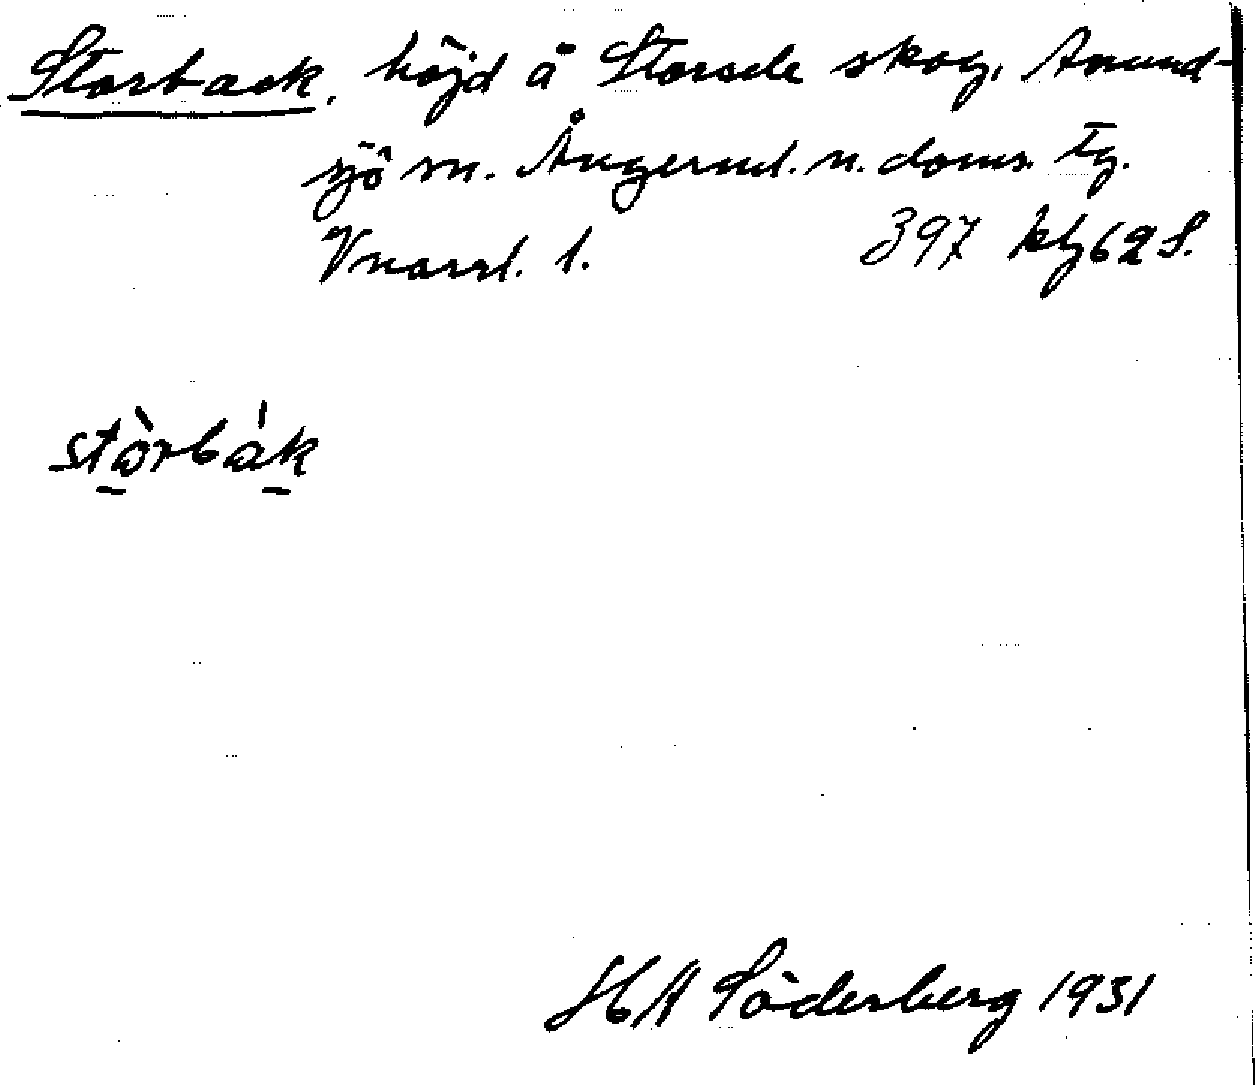 Storback, höjd å Storsele skog, Anund-
sjö sn. Ångerml. n. doms. tg.
Vnorrl. l. 397 kbl 62 S.
stò̱rbá̱k
HA Söderberg 1931